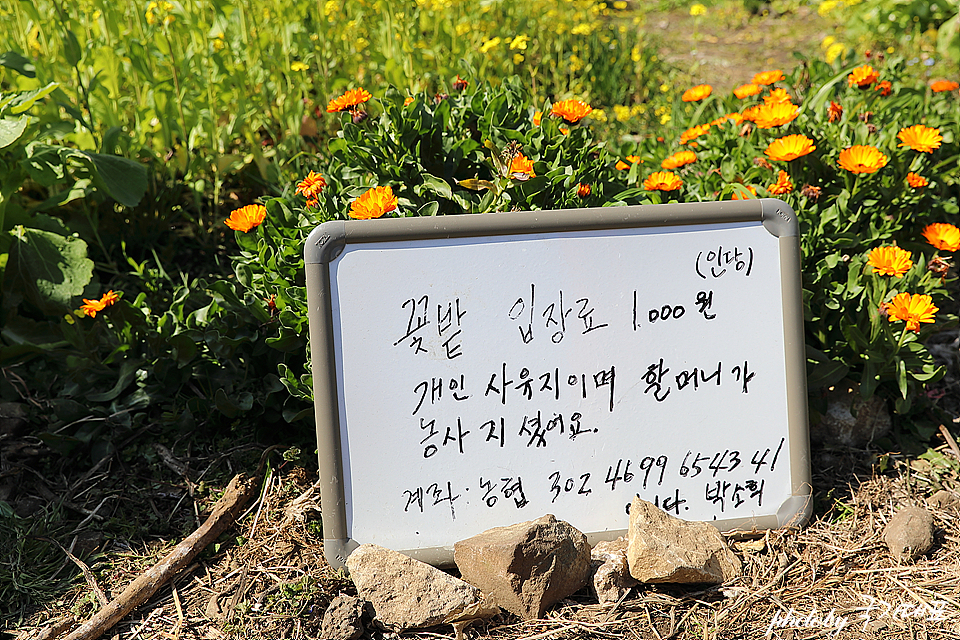 (인당)
꽃밭 입장료 1.000원
개인 사유지이며 할머니가
농사 지셨어요.
계좌: 농협 302 4699 6543 41
박소희
photo by